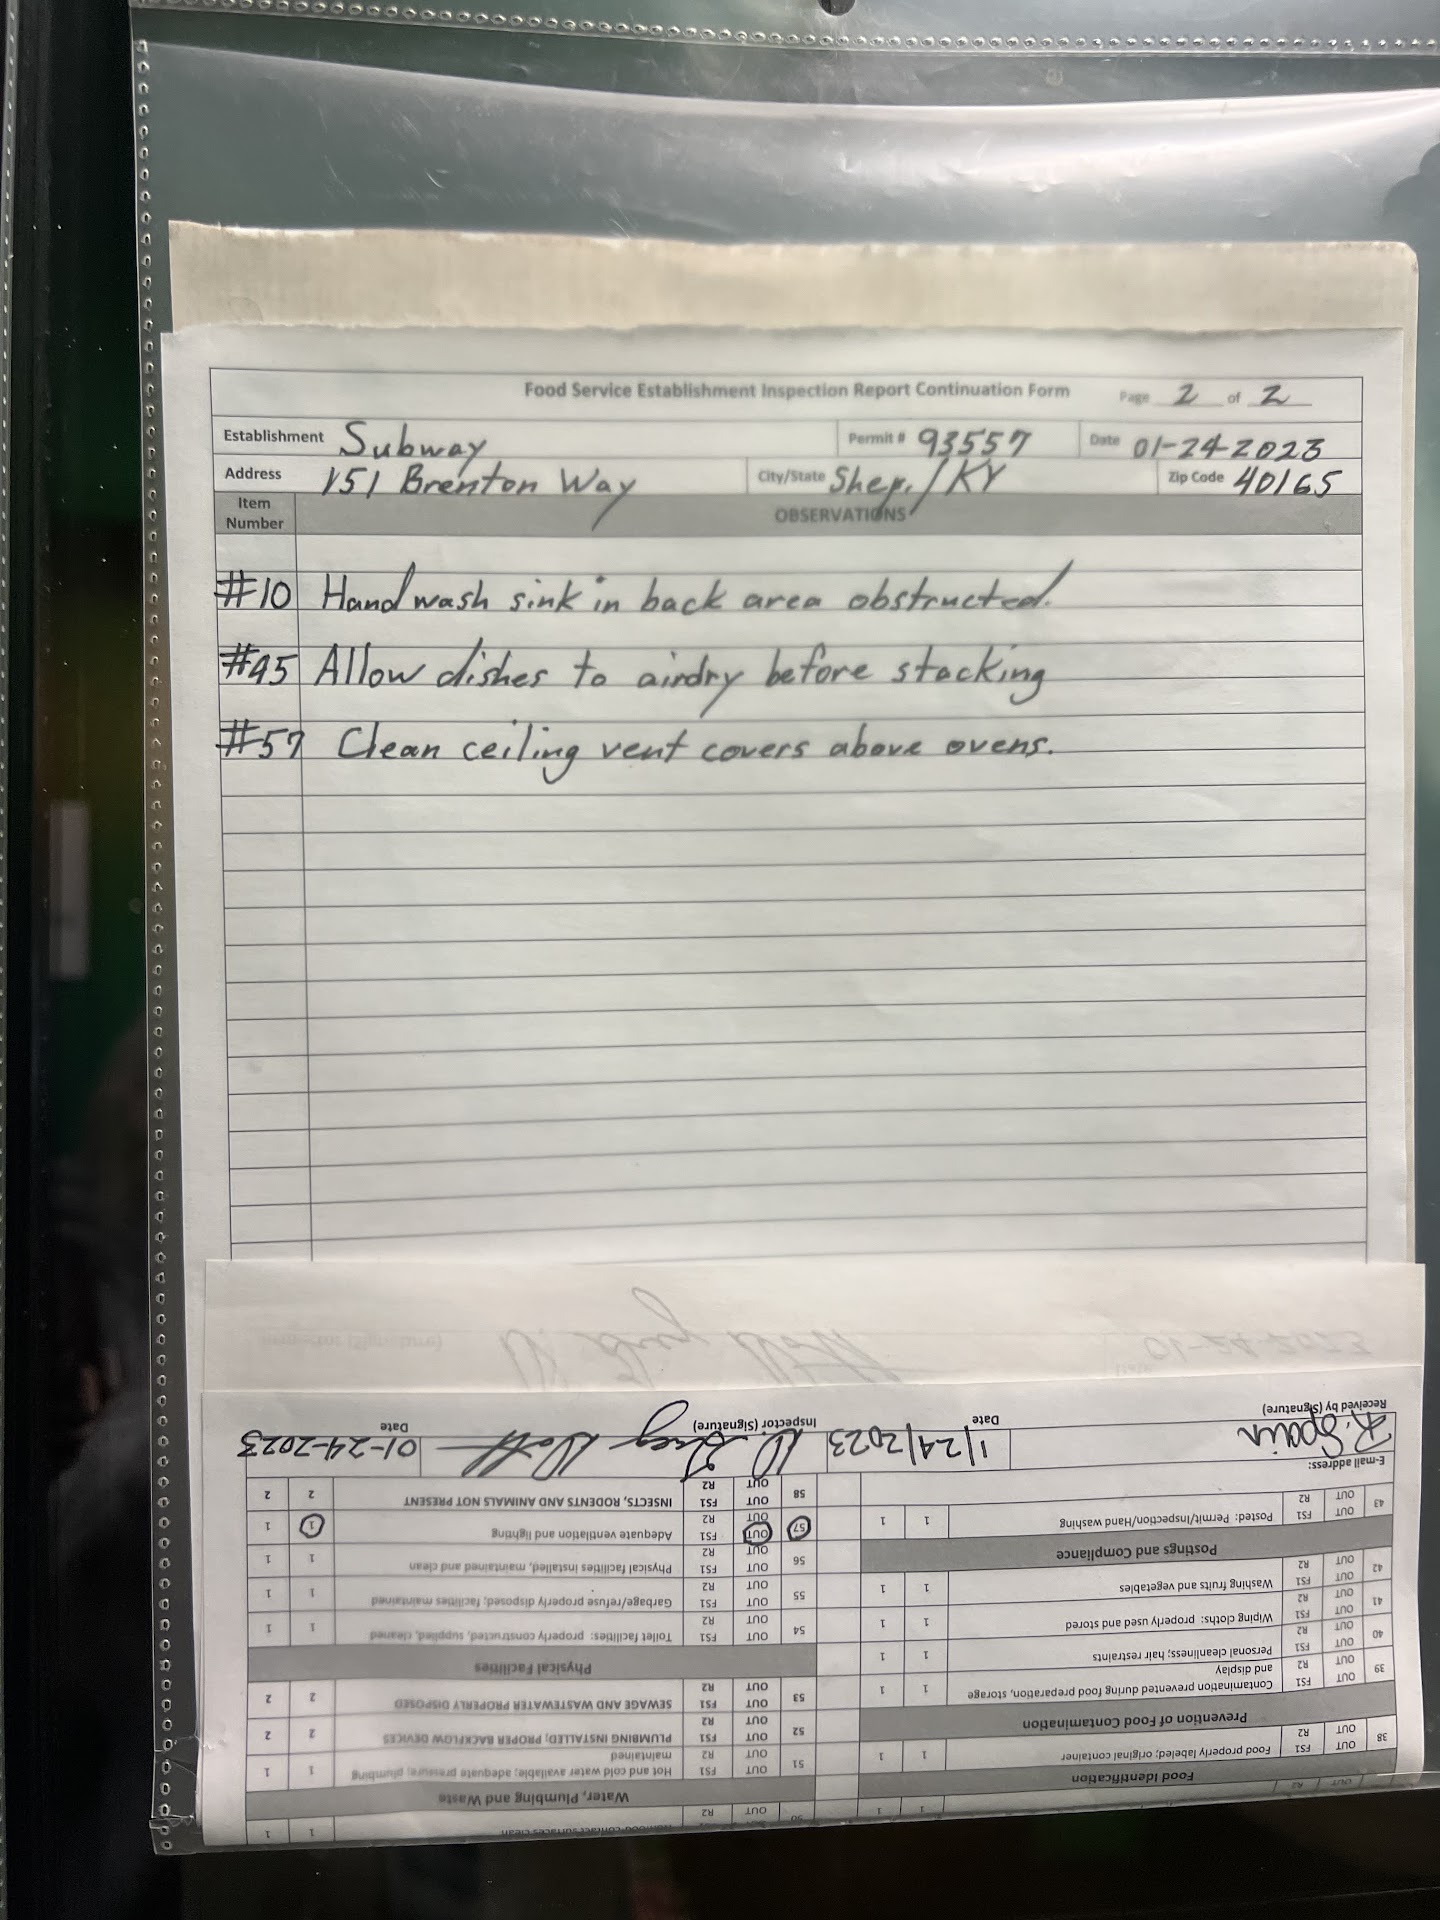 Food Service Establishment Inspection Report Continuation Form Page 2 of 2
Establishment Subway Permit # 93557 Date 01-24-2023
Address 151 Brenton Way City/State Shep./KY Zip Code 40165
Item Number OBSERVATIONS
#10 Hand wash sink in back area obstructed.
#45 Allow dishes to airdry before stacking
#57 Clean ceiling vent covers above ovens.
Received by (Signature) R. Spain Date 1/24/2023 Inspector (Signature) Date 01-24-2023
E-mail address:
43 OUT OUT FS1 R2 Posted: Permit/Inspection/Hand washing 1 1
Postings and Compliance
42 OUT OUT FS1 R2 Washing fruits and vegetables 1 1
41 OUT OUT FS1 R2 Wiping cloths: properly used and stored 1 1
40 OUT OUT FS1 R2 Personal cleanliness; hair restraints 1 1
39 OUT OUT FS1 R2 Contamination prevented during food preparation, storage and display 1 1
Prevention of Food Contamination
38 OUT OUT FS1 R2 Food properly labeled; original container 1 1
Food Identification
58 OUT OUT FS1 R2 INSECTS, RODENTS AND ANIMALS NOT PRESENT 2 2
57 OUT OUT FS1 R2 Adequate ventilation and lighting 1 1
56 OUT OUT FS1 R2 Physical facilities installed, maintained and clean 1 1
55 OUT OUT FS1 R2 Garbage/refuse properly disposed; facilities maintained 1 1
54 OUT OUT FS1 R2 Toilet facilities: properly constructed, supplied, cleaned 1 1
Physical Facilities
53 OUT OUT FS1 R2 SEWAGE AND WASTEWATER PROPERLY DISPOSED 2 2
52 OUT OUT FS1 R2 PLUMBING INSTALLED; PROPER BACKFLOW DEVICES 2 2
51 OUT OUT FS1 R2 Hot and cold water available; adequate pressure; plumbing maintained 1 1
Water, Plumbing and Waste
50 OUT R2 1 1